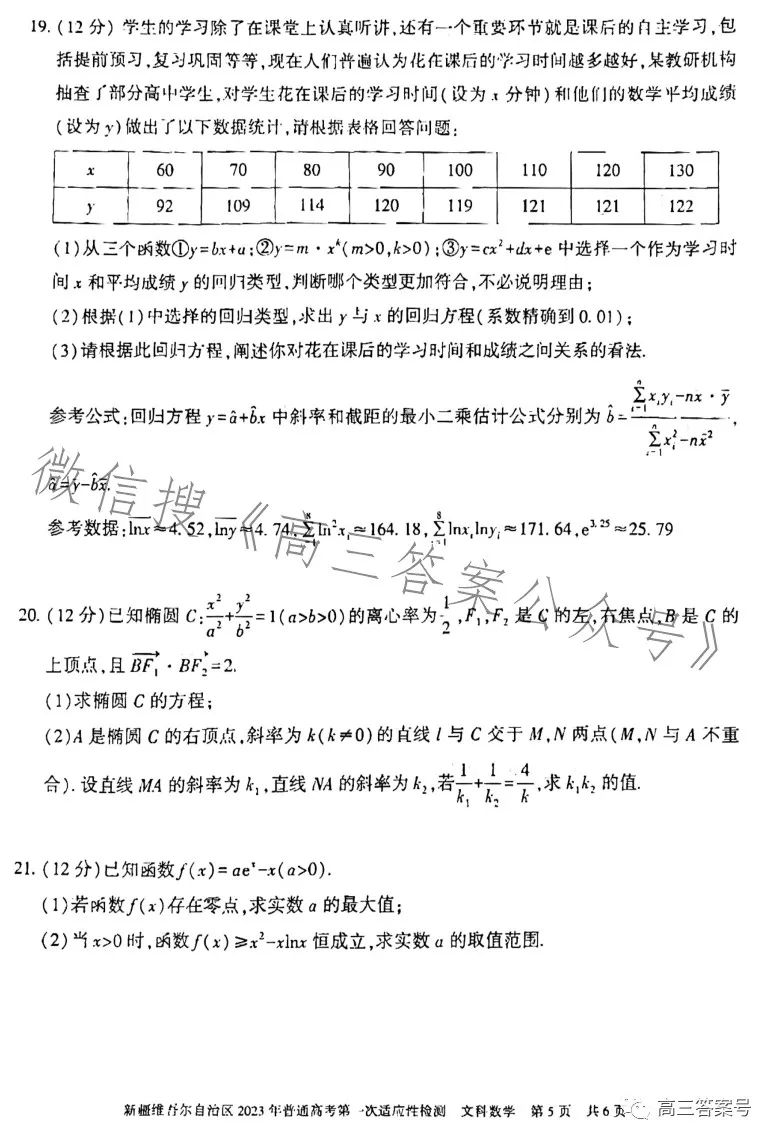 19.(12分)学生的学习除了在课堂上认真听讲,还有一个重要环节就是课后的自主学习,包
括提前预习,复习巩固等等,现在人们普遍认为花在课后的学习时间越多越好,某教研机构
抽查了部分高中学生,对学生花在课后的学习时间(设为x分钟)和他们的数学平均成绩
(设为y)做出了以下数据统计,请根据表格回答问题:
x 60 70 80 90 100 110 120 130
y 92 109 114 120 119 121 121 122
(1)从三个函数①y=bx+a;②y=m·x^k(m>0,k>0);③y=cx²+dx+e中选择一个作为学习时
间x和平均成绩y的回归类型,判断哪个类型更加符合,不必说明理由;
(2)根据(1)中选择的回归类型,求出y与x的回归方程(系数精确到0.01);
(3)请根据此回归方程,阐述你对花在课后的学习时间和成绩之间关系的看法.
参考公式:回归方程y=â+b̂x中斜率和截距的最小二乘估计公式分别为b̂=(∑_{i=1}^{n}x_iy_i-nx̄·ȳ)/(∑_{i=1}^{n}x_i²-nx̄²),
â=ȳ-b̂x̄.
参考数据:\overline{lnx}≈4.52,\overline{lny}≈4.74,∑_{i=1}^{8}ln²x_i≈164.18,∑_{i=1}^{8}lnx_ilny_i≈171.64,e^{3.25}≈25.79
微信搜《高三答案公众号》
20.(12分)已知椭圆C:x²/a²+y²/b²=1(a>b>0)的离心率为1/2,F₁,F₂是C的左,右焦点,B是C的
上顶点,且\overrightarrow{BF₁}·\overrightarrow{BF₂}=2.
(1)求椭圆C的方程;
(2)A是椭圆C的右顶点,斜率为k(k≠0)的直线l与C交于M,N两点(M,N与A不重
合).设直线MA的斜率为k₁,直线NA的斜率为k₂,若1/k₁+1/k₂=4/k,求k₁k₂的值.
21.(12分)已知函数f(x)=ae^x-x(a>0).
(1)若函数f(x)存在零点,求实数a的最大值;
(2)当x>0时,函数f(x)≥x²-xlnx恒成立,求实数a的取值范围.
新疆维吾尔自治区2023年普通高考第一次适应性检测 文科数学 第5页 共6页
高三答案号